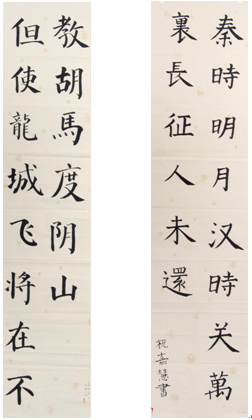 秦時明月汉時关萬
裏長征人未還
祝嘉慧書
教胡馬度阴山
但使龍城飞将在不